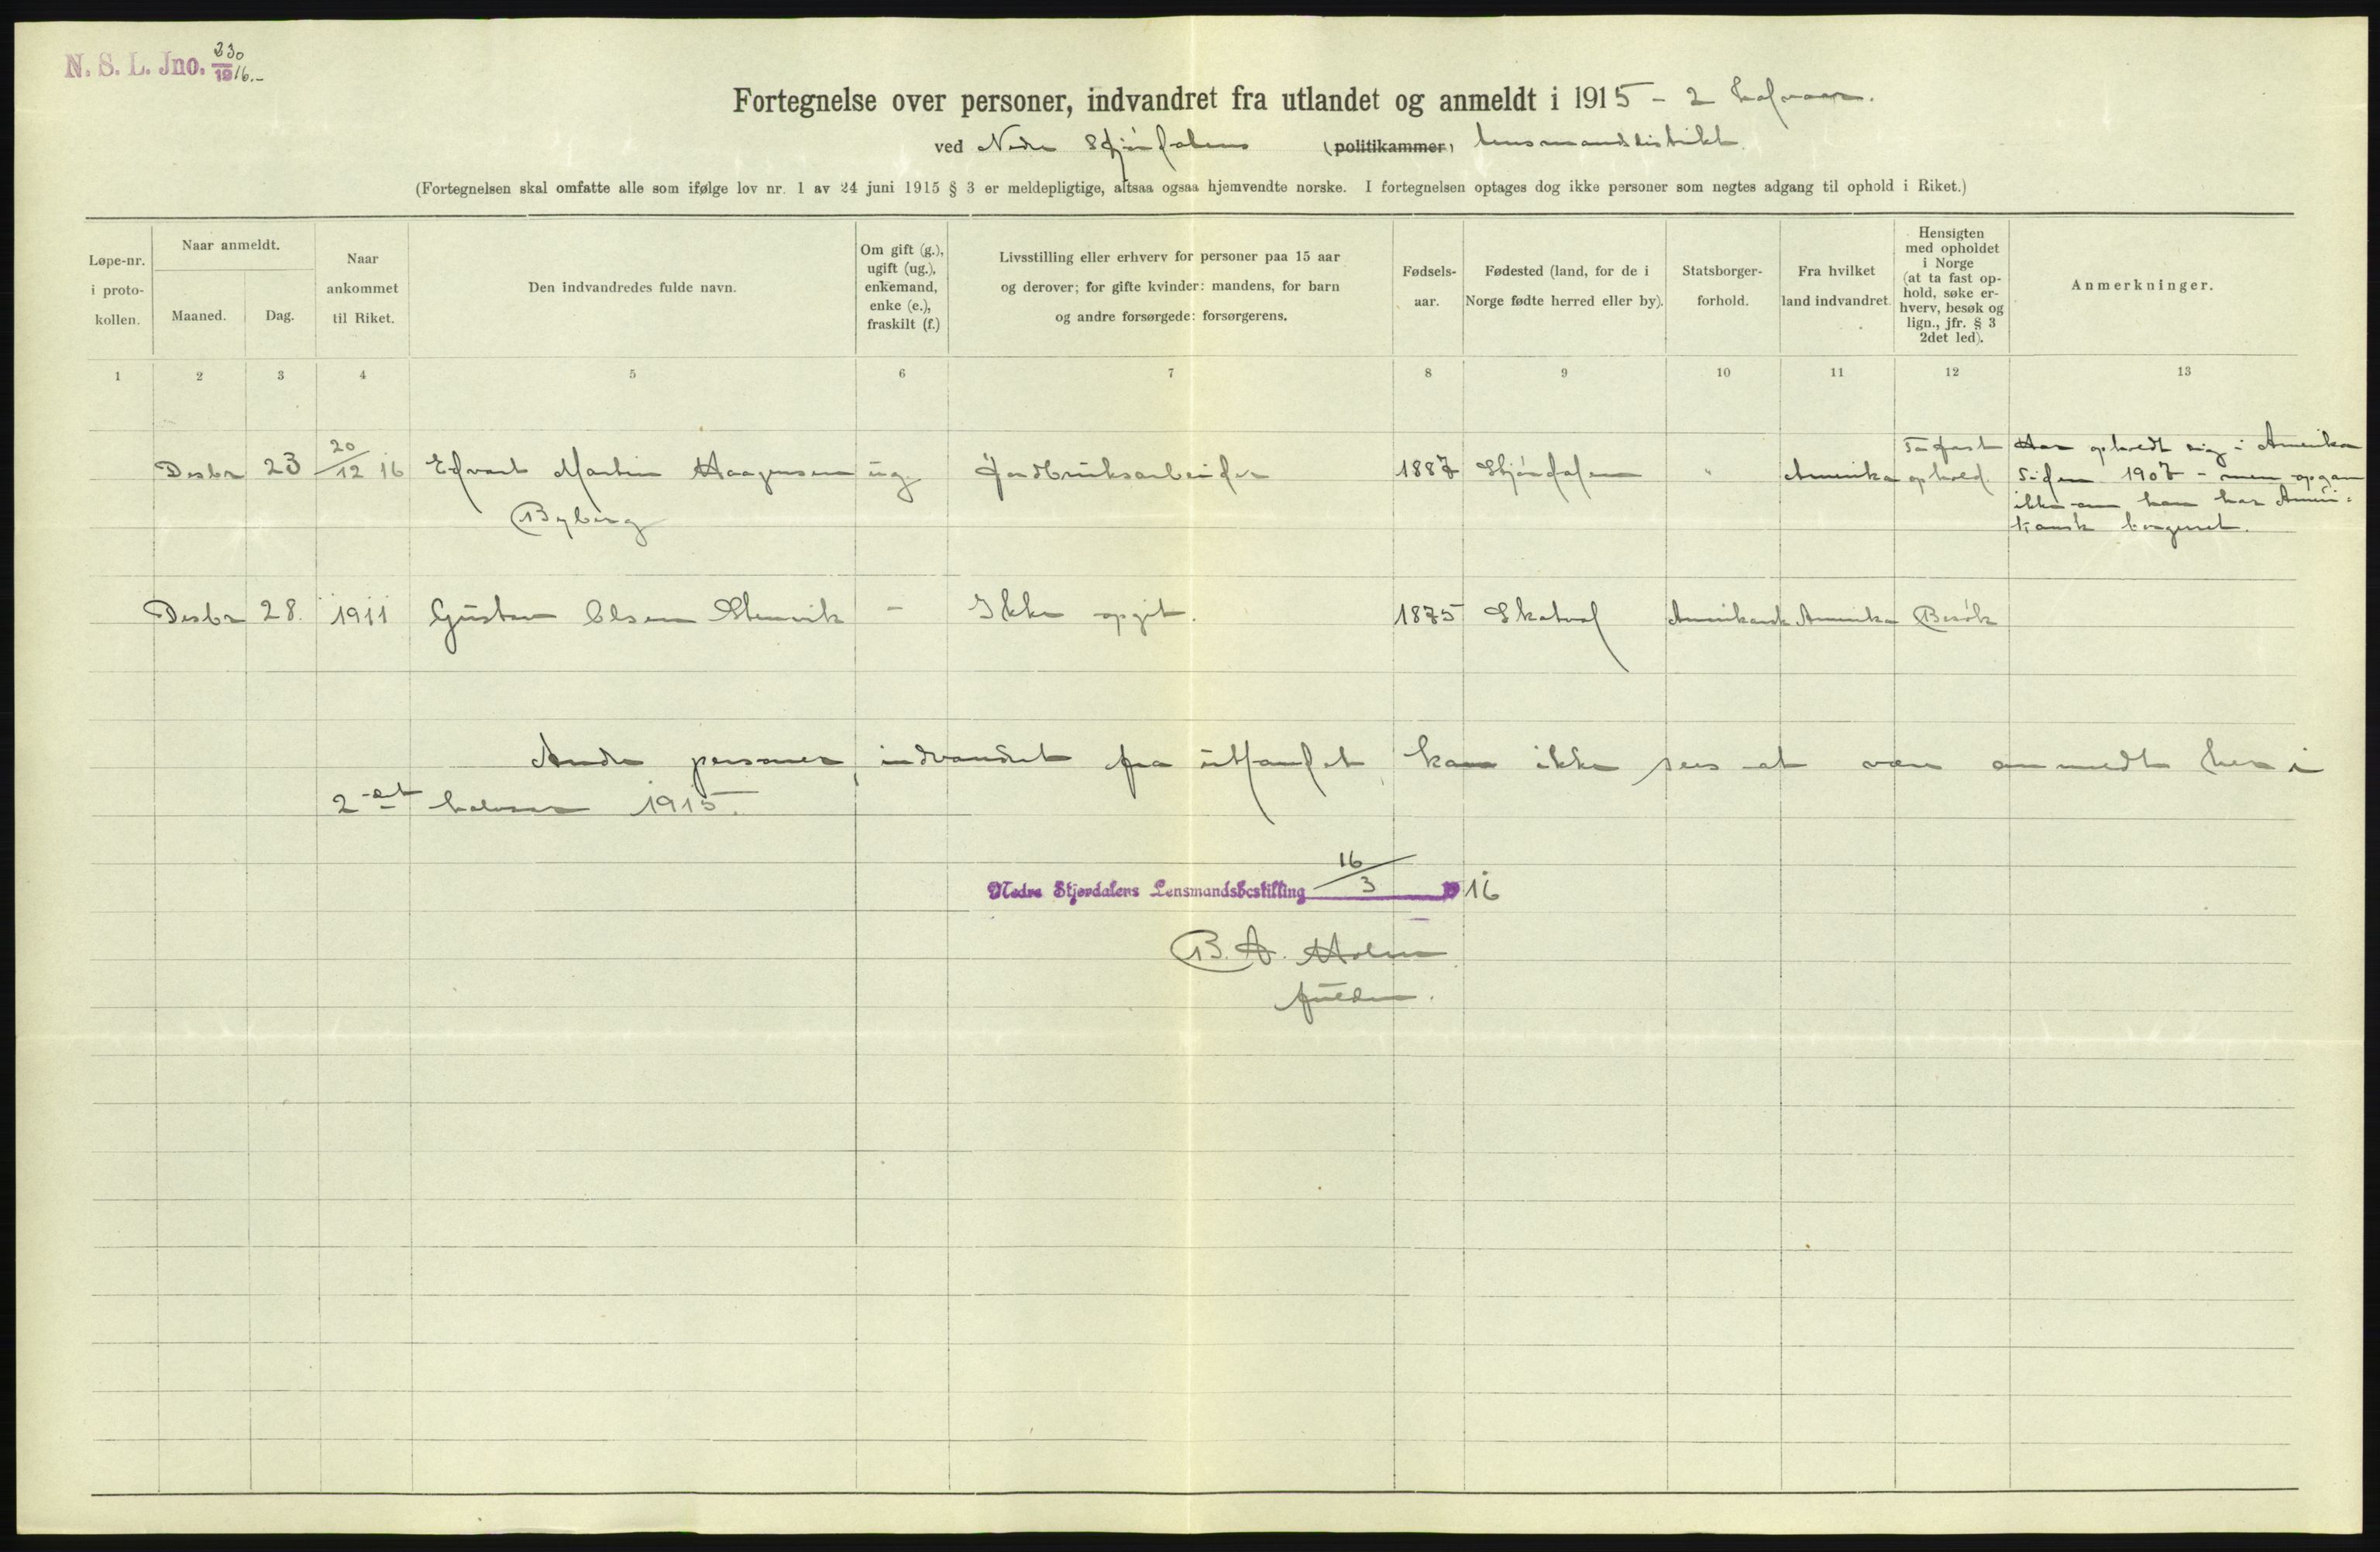 N. S. L. Jno. 230/1916.-
Fortegnelse over personer, indvandret fra utlandet og anmeldt i 1915 - 2 halvaar.
ved Nedre Stjørdalens (politikammer) lensmandsdistrikt.
(Fortegnelsen skal omfatte alle som ifølge lov nr. 1 av 24 juni 1915 § 3 er meldepligtige, altsaa ogsaa hjemvendte norske. I fortegnelsen optages dog ikke personer som negtes adgang til ophold i Riket.)
Løpe-nr. i proto-kollen.
Naar anmeldt.
Maaned. Dag.
Naar ankommet til Riket.
Den indvandredes fulde navn.
Om gift (g.), ugift (ug.), enkemand, enke (e.), fraskilt (f.)
Livsstilling eller erhverv for personer paa 15 aar
og derover; for gifte kvinder: mandens, for barn
og andre forsørgede: forsørgerens.
Fødsels-aar.
Fødested (land, for de i
Norge fødte herred eller by).
Statsborger-forhold.
Fra hvilket land indvandret.
Hensigten med opholdet i Norge (at ta fast op-hold, søke er-hverv, besøk og lign., jfr. § 3 2det led).
Anmerkninger.
1 2 3 4 5 6 7 8 9 10 11 12 13
Desbr 23 20/12 16 Edvart Martin Haagensen ug. Jordbruksarbeider 1887 Stjørdalen " Amerika Ta fast ophold. Har opholdt sig i Amerika
Byberg siden 1907 - men opgav
ikke om han har Ameri-
kansk borgerret.
Desbr 28. 1911 Gustav Olsen Stenvik - Ikke opgit. 1875 Skatval Amerikansk Amerika Besøk
Andre personer, indvandret fra utlandet, kan ikke sees at være anmeldt her i
2-det halvaar 1915.
Nedre Stjørdalens Lensmandsbestilling 16/3 1916
B. A. Holm
fuldm.